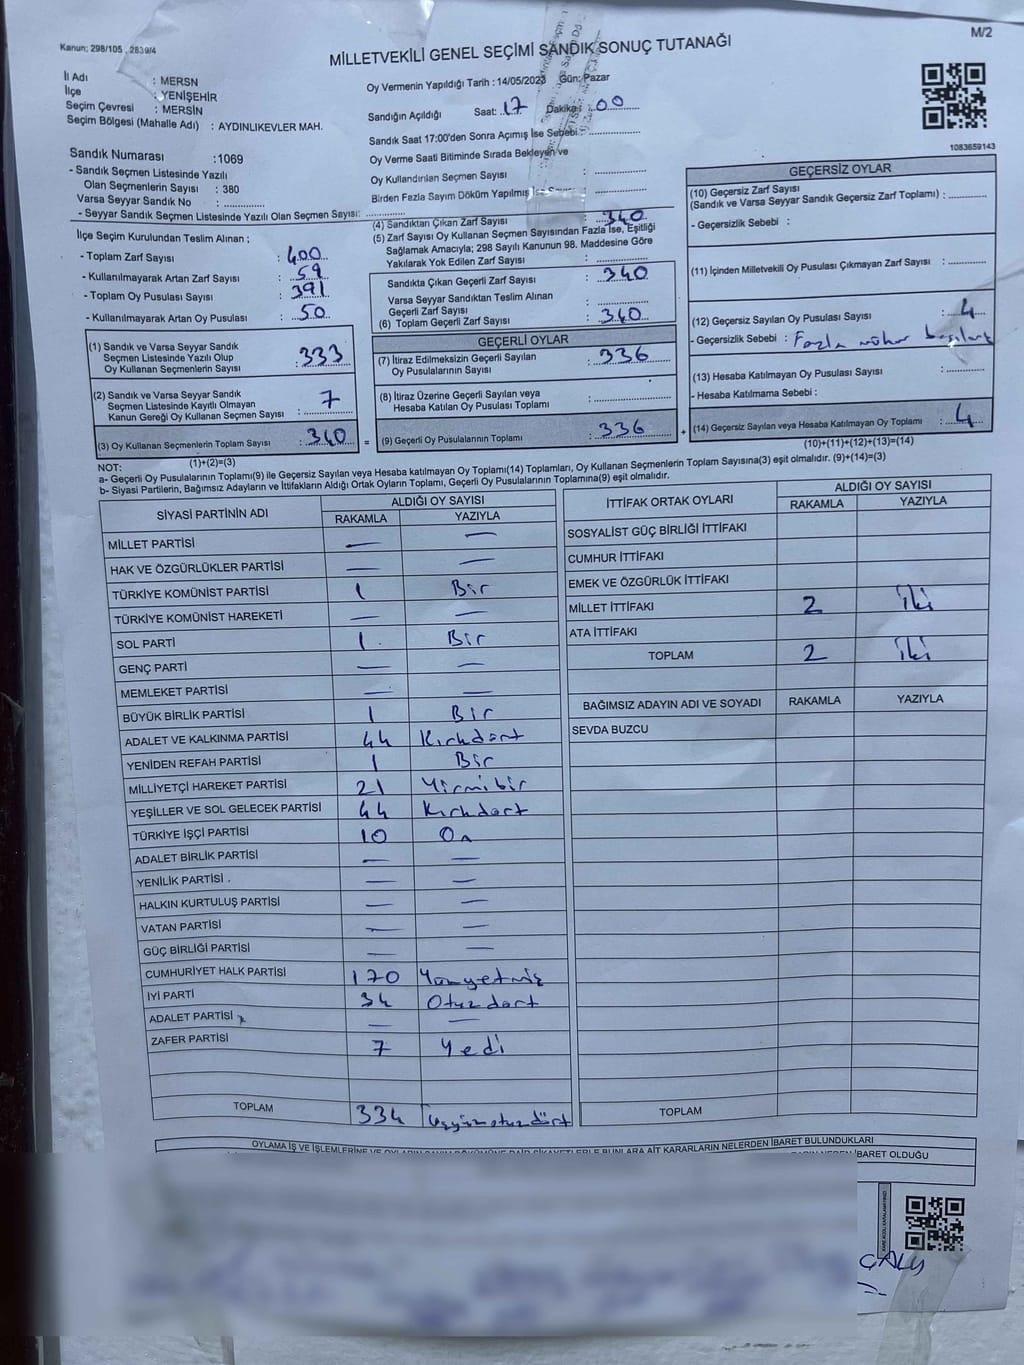 Kanun; 298/105 , 2839/4
M/2
MİLLETVEKİLİ GENEL SEÇİMİ SANDIK SONUÇ TUTANAĞI
İl Adı : MERSN
İlçe : YENİŞEHİR
Seçim Çevresi : MERSİN
Seçim Bölgesi (Mahalle Adı) : AYDINLIKEVLER MAH.
Oy Vermenin Yapıldığı Tarih : 14/05/2023 Gün: Pazar
Sandığın Açıldığı Saat: 17 Dakika: 00
Sandık Saat 17:00'den Sonra Açımış İse Sebebi :
Oy Verme Saati Bitiminde Sırada Bekleyen ve
Oy Kullandırılan Seçmen Sayısı :
Birden Fazla Sayım Döküm Yapılmış İse
1083659143
Sandık Numarası : 1069
- Sandık Seçmen Listesinde Yazılı
Olan Seçmenlerin Sayısı : 380
Varsa Seyyar Sandık No :
- Seyyar Sandık Seçmen Listesinde Yazılı Olan Seçmen Sayısı:
İlçe Seçim Kurulundan Teslim Alınan ;
- Toplam Zarf Sayısı : 400
- Kullanılmayarak Artan Zarf Sayısı : 59
- Toplam Oy Pusulası Sayısı : 391
- Kullanılmayarak Artan Oy Pusulası : 50
(1) Sandık ve Varsa Seyyar Sandık
Seçmen Listesinde Yazılı Olup
Oy Kullanan Seçmenlerin Sayısı : 333
(2) Sandık ve Varsa Seyyar Sandık
Seçmen Listesinde Kayıtlı Olmayan
Kanun Gereği Oy Kullanan Seçmen Sayısı : 7
(3) Oy Kullanan Seçmenlerin Toplam Sayısı : 340 =
(1)+(2)=(3)
(4) Sandıktan Çıkan Zarf Sayısı : 340
(5) Zarf Sayısı Oy Kullanan Seçmen Sayısından Fazla İse, Eşitliği
Sağlamak Amacıyla; 298 Sayılı Kanunun 98. Maddesine Göre
Yakılarak Yok Edilen Zarf Sayısı :
Sandıkta Çıkan Geçerli Zarf Sayısı : 340
Varsa Seyyar Sandıktan Teslim Alınan
Geçerli Zarf Sayısı :
(6) Toplam Geçerli Zarf Sayısı : 340
GEÇERLİ OYLAR
(7) İtiraz Edilmeksizin Geçerli Sayılan
Oy Pusulalarının Sayısı : 336
(8) İtiraz Üzerine Geçerli Sayılan veya
Hesaba Katılan Oy Pusulası Toplamı :
(9) Geçerli Oy Pusulalarının Toplamı : 336 +
GEÇERSİZ OYLAR
(10) Geçersiz Zarf Sayısı
(Sandık ve Varsa Seyyar Sandık Geçersiz Zarf Toplamı) :
- Geçersizlik Sebebi :
(11) İçinden Milletvekili Oy Pusulası Çıkmayan Zarf Sayısı :
(12) Geçersiz Sayılan Oy Pusulası Sayısı : 4
- Geçersizlik Sebebi : Fazla mühür
(13) Hesaba Katılmayan Oy Pusulası Sayısı :
- Hesaba Katılmama Sebebi :
(14) Geçersiz Sayılan veya Hesaba Katılmayan Oy Toplamı : 4
(10)+(11)+(12)+(13)=(14)
NOT:
a- Geçerli Oy Pusulalarının Toplamı(9) ile Geçersiz Sayılan veya Hesaba katılmayan Oy Toplamı(14) Toplamları, Oy Kullanan Seçmenlerin Toplam Sayısına(3) eşit olmalıdır. (9)+(14)=(3)
b- Siyasi Partilerin, Bağımsız Adayların ve İttifakların Aldığı Ortak Oyların Toplamı, Geçerli Oy Pusulalarının Toplamına(9) eşit olmalıdır.
SİYASİ PARTİNİN ADI ALDIĞI OY SAYISI
RAKAMLA YAZIYLA
MİLLET PARTİSİ — —
HAK VE ÖZGÜRLÜKLER PARTİSİ — —
TÜRKİYE KOMÜNİST PARTİSİ 1 Bir
TÜRKİYE KOMÜNİST HAREKETİ — —
SOL PARTİ 1 Bir
GENÇ PARTİ — —
MEMLEKET PARTİSİ — —
BÜYÜK BİRLİK PARTİSİ 1 Bir
ADALET VE KALKINMA PARTİSİ 44 Kırkdört
YENİDEN REFAH PARTİSİ 1 Bir
MİLLİYETÇİ HAREKET PARTİSİ 21 Yirmibir
YEŞİLLER VE SOL GELECEK PARTİSİ 44 Kırkdört
TÜRKİYE İŞÇİ PARTİSİ 10 On
ADALET BİRLİK PARTİSİ — —
YENİLİK PARTİSİ — —
HALKIN KURTULUŞ PARTİSİ — —
VATAN PARTİSİ — —
GÜÇ BİRLİĞİ PARTİSİ — —
CUMHURİYET HALK PARTİSİ 170 Yüzyetmiş
İYİ PARTİ 34 Otuzdört
ADALET PARTİSİ — —
ZAFER PARTİSİ 7 Yedi
TOPLAM 334 Üçyüzotuzdört
İTTİFAK ORTAK OYLARI ALDIĞI OY SAYISI
RAKAMLA YAZIYLA
SOSYALİST GÜÇ BİRLİĞİ İTTİFAKI
CUMHUR İTTİFAKI
EMEK VE ÖZGÜRLÜK İTTİFAKI
MİLLET İTTİFAKI 2 İki
ATA İTTİFAKI
TOPLAM 2 İki
BAĞIMSIZ ADAYIN ADI VE SOYADI RAKAMLA YAZIYLA
SEVDA BUZCU
TOPLAM
OYLAMA İŞ VE İŞLEMLERİNE VE OYLARIN SAYIM DÖKÜMÜNE DAİR ŞİKAYETLERLE BUNLARA AİT KARARLARIN NELERDEN İBARET BULUNDUKLARI
İBARET OLDUĞU